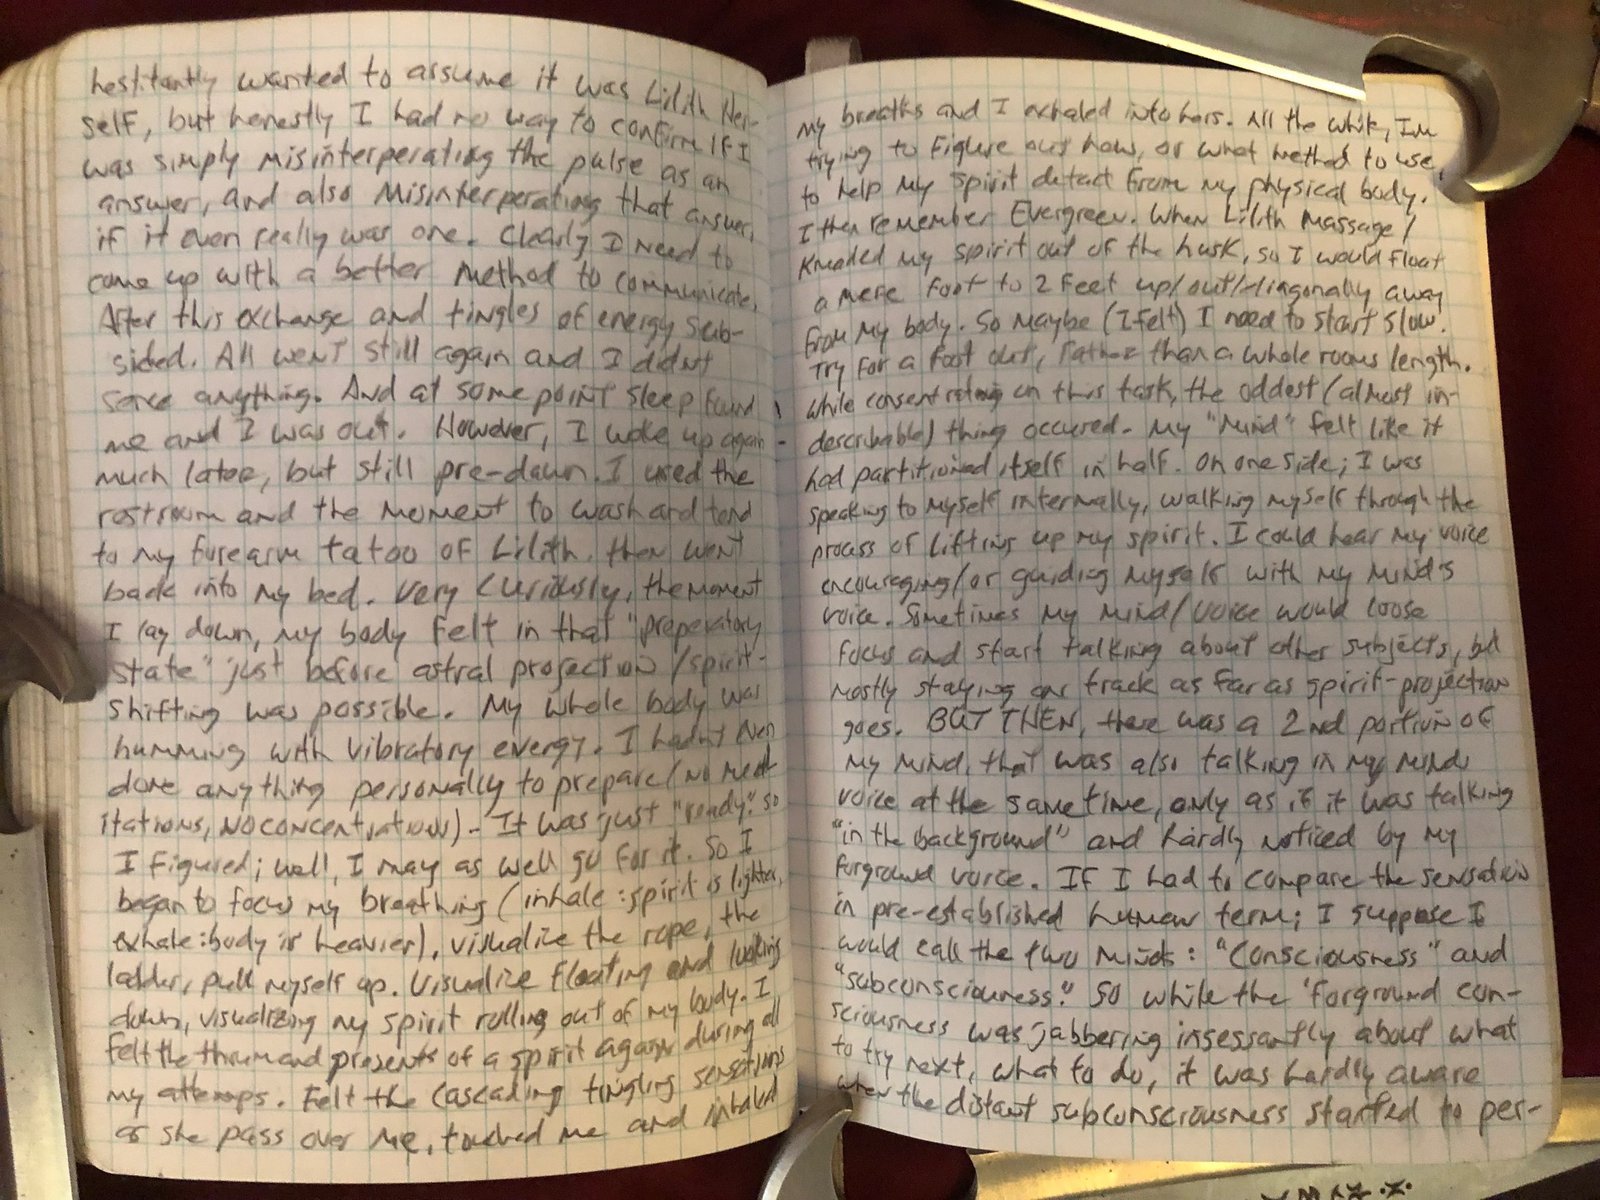 hestitantly wanted to assume it was Lilith Her-
self, but honestly I had no way to confirm if I
was simply misinterperating the pulse as an
answer, and also misinterperating that answer,
if it even really was one. Clearly I need to
come up with a better method to communicate.
After this exchange and tingles of energy sub-
sided. All went still again and I didn't
sence anything. And at some point sleep found
me and I was out. However, I woke up again
much later, but still pre-dawn. I used the
restroom and the moment to wash and tend
to my forearm tatoo of Lilith. then went
back into my bed. Very curiously, the moment
I lay down, my body felt in that "preperatory
state" just before astral projection/spirit-
shifting was possible. My whole body was
humming with vibratory energy. I hadn't even
done anything personally to prepare (no med-
itations, no concentrations) - It was just "ready." so
I figured; well, I may as well go for it. So I
began to focus my breathing (inhale: spirit is lighter,
exhale: body is heavier), visualize the rope, the
ladder, pull myself up. Visualize floating and looking
down, visualizing my spirit rolling out of my body. I
felt the thrum and presents of a spirit again during all
my attemps. Felt the cascading tingling sensations
as she pass over me, touched me and inhaled
my breaths and I exhaled into hers. All the while, I'm
trying to figure out how, or what method to use,
to help my spirit detact from my physical body.
I then remember Evergreen. When Lilith massage/
kneaded my spirit out of the husk, so I would float
a mere foot to 2 feet up/out/diagonally away
from my body. So maybe (I felt) I need to start slow.
Try for a foot out, rather than a whole rooms length.
While consentrating on this task, the oddest (almost in-
describable) thing occured. My "Mind" felt like it
had partitioned itself in half. On one side; I was
speaking to myself internally, walking myself through the
process of lifting up my spirit. I could hear my voice
encouraging/or guiding myself with my mind's
voice. Sometimes my mind/voice would loose
focus and start talking about other subjects, but
mostly staying on track as far as spirit-projection
goes. BUT THEN, there was a 2nd portion of
my mind, that was also talking in my minds
voice at the same time, only as if it was talking
"in the background" and hardly noticed by my
forground voice. If I had to compare the sensation
in pre-established human term; I suppose I
would call the two minds: "Consciousness" and
"subconsciousness." So while the 'forground con-
sciousness was jabbering insessantly about what
to try next, what to do, it was hardly aware
when the distant subconsciousness started to per-